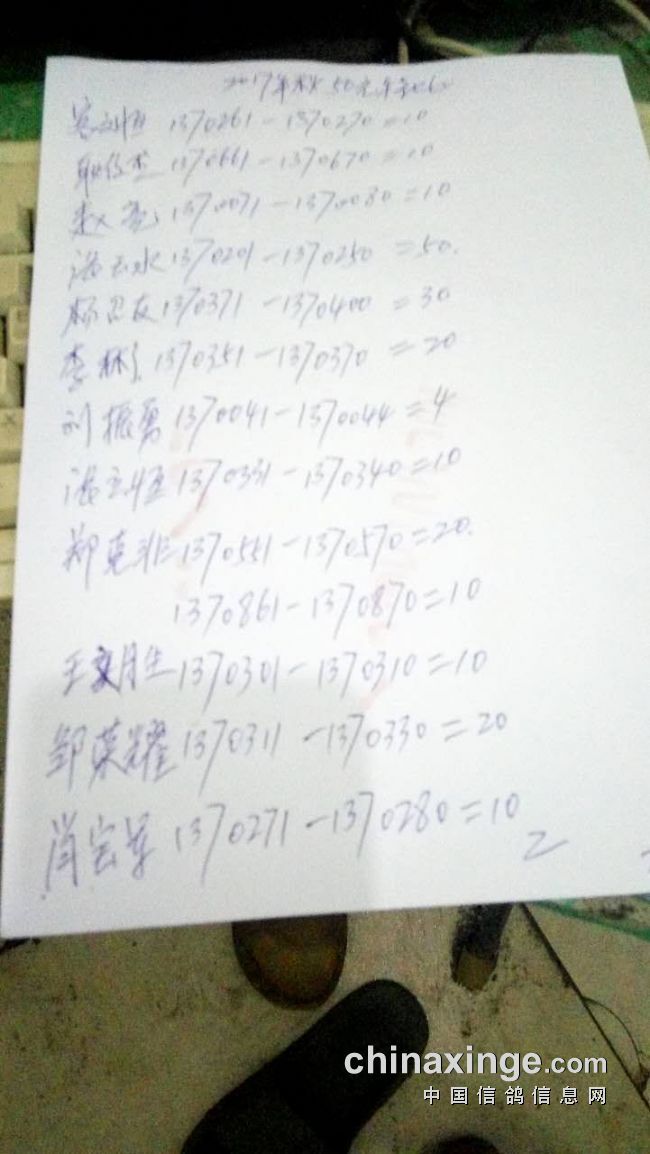 2017年秋50元
1370261-1370270=10
1370661-1370670=10
赵亮 1370071-1370080=10
1370201-1370250=50.
杨 友 1370371-1370400=30
李林 1370351-1370370=20
刘振勇 1370041-1370044=4
1370331-1370340=10
郑克非 1370551-1370570=20.
1370861-1370870=10
王 月生 1370301-1370310=10
邹荣耀 1370311-1370330=20
肖宝 1370271-1370280=10
2
chinaxinge.com
中国信鸽信息网